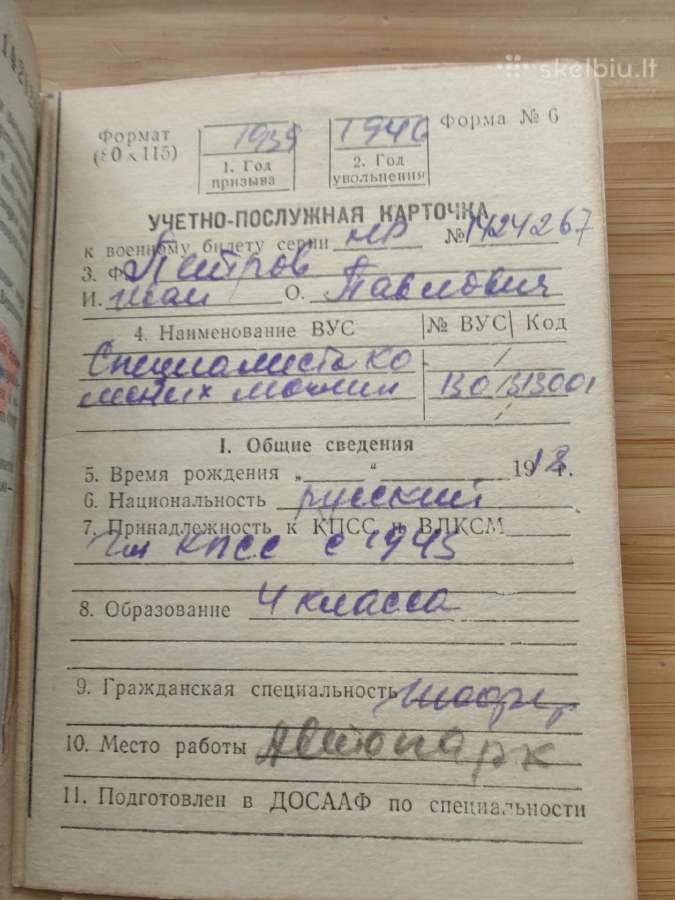 skelbiu.lt
Формат
(80 х 115)
1939
1. Год
призыва
1946
2. Год
увольнения
Форма № 6
УЧЕТНО-ПОСЛУЖНАЯ КАРТОЧКА
к военному билету серии НР № 1424267
3. Ф. Петров
И. Иван О. Павлович
4. Наименование ВУС № ВУС Код
Специалиста ко
лесных машин 130 313001
I. Общие сведения
5. Время рождения „ “ 1918 г.
6. Национальность русский
7. Принадлежность к КПСС и ВЛКСМ
Чл КПСС с 1945
8. Образование 4 класса
9. Гражданская специальность
10. Место работы Автопарк
11. Подготовлен в ДОСААФ по специальности